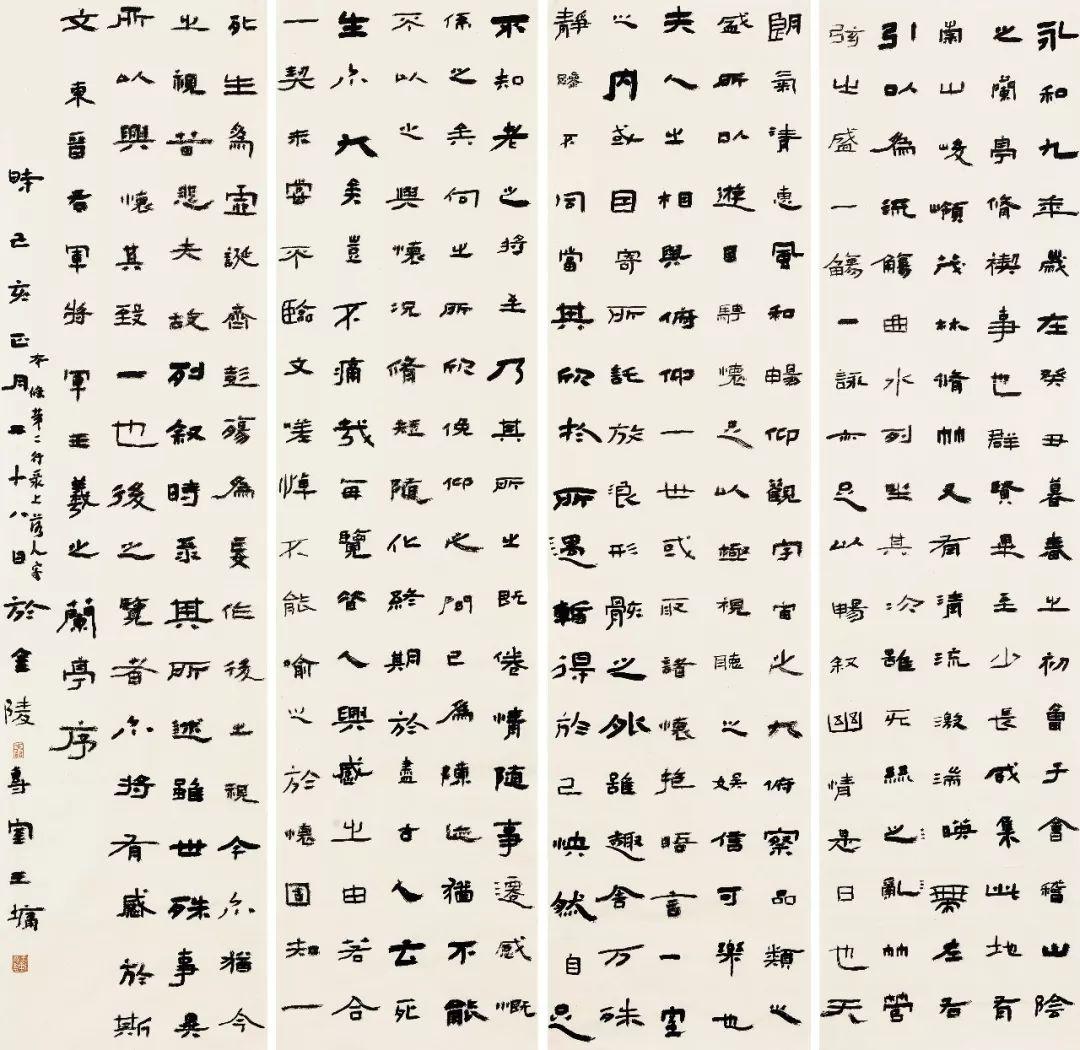 永和九年歲在癸丑暮春之初會于會稽山陰
之蘭亭脩禊事也群賢畢至少長咸集此地有
崇山峻嶺茂林脩竹又有清流激湍暎帶左右
引以為流觴曲水列坐其次雖无絲之亂竹管
弦之盛一觴一詠亦足以暢叙幽情是日也天
朗氣清惠風和暢仰觀宇宙之大俯察品類之
盛所以遊目騁懷足以極視聽之娛信可樂也
夫人之相與俯仰一世或取諸懷抱晤言一室
之内或因寄所託放浪形骸之外雖趣舍万殊
靜躁不同當其欣於所遇暫得於己怏然自足
不知老之將至乃其所之既倦情隨事遷感慨
係之矣向之所欣俛仰之間已為陳迹猶不能
不以之興懷況脩短隨化終期於盡古人云死
生亦大矣豈不痛哉每覽昔人興感之由若合
一契未嘗不臨文嗟悼不能喻之於懷固知一
死生為虛誕齊彭殤為妄作後之視今亦猶今
之視昔悲夫故列叙時录其所述雖世殊事異
所以興懷其致一也後之覽者亦將有感於斯
文 東晉右軍將軍王羲之蘭亭序
本條第二行录上落人字
時己亥正月二十八日於金陵專室王墉